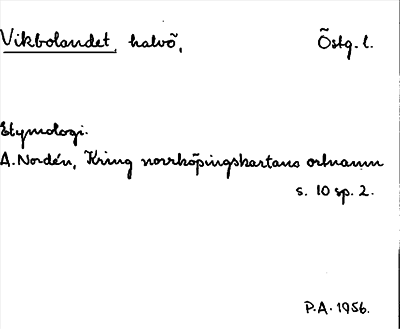 Vikbolandet, halvö, Östg. l.
Etymologi.
A. Nordén, Kring norrköpingskartans ortnamn
s. 10 sp. 2.
P.A. 1956.